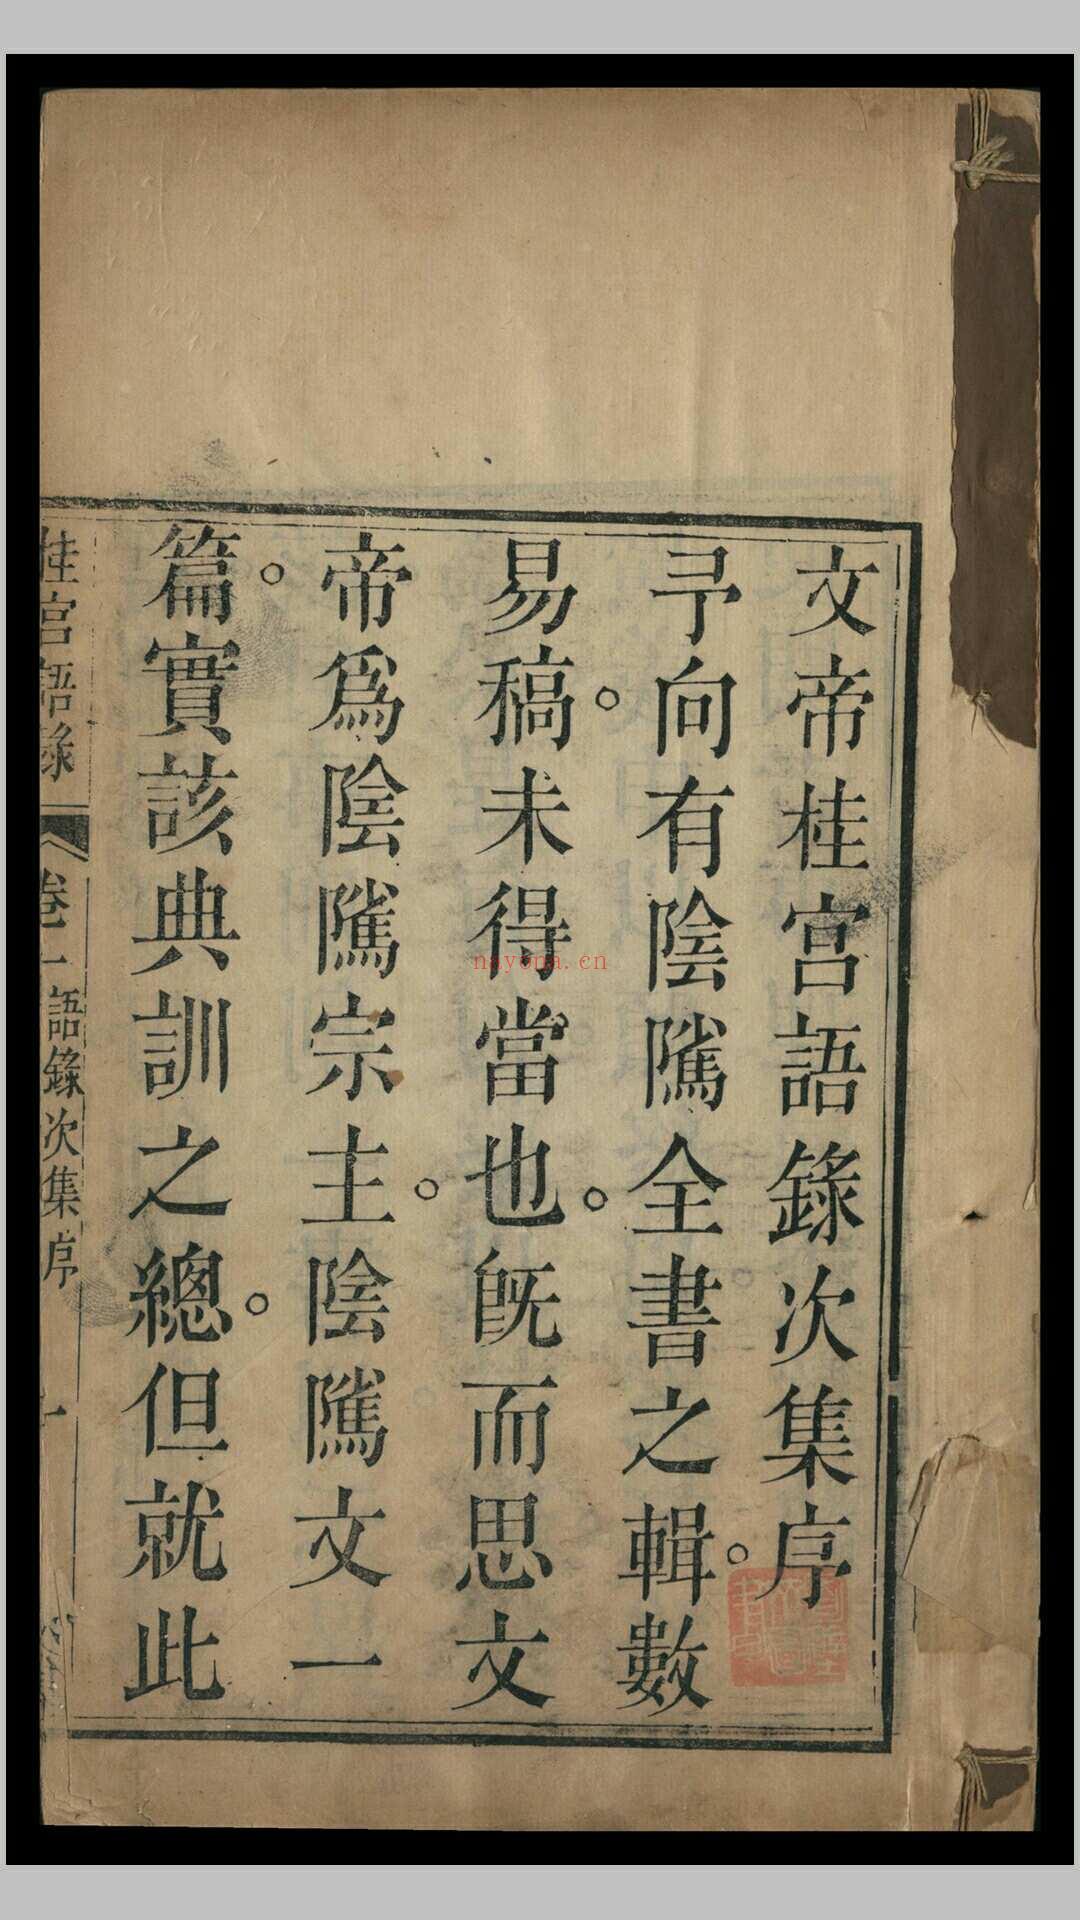 文帝桂宮語錄次集序
予向有陰隲全書之輯。數
易稿。未得當也。旣而思文
帝爲陰隲宗主。陰隲文一
篇。實該典訓之總。但就此
桂宮語錄 卷一 語錄次集序 一
nayona.cn